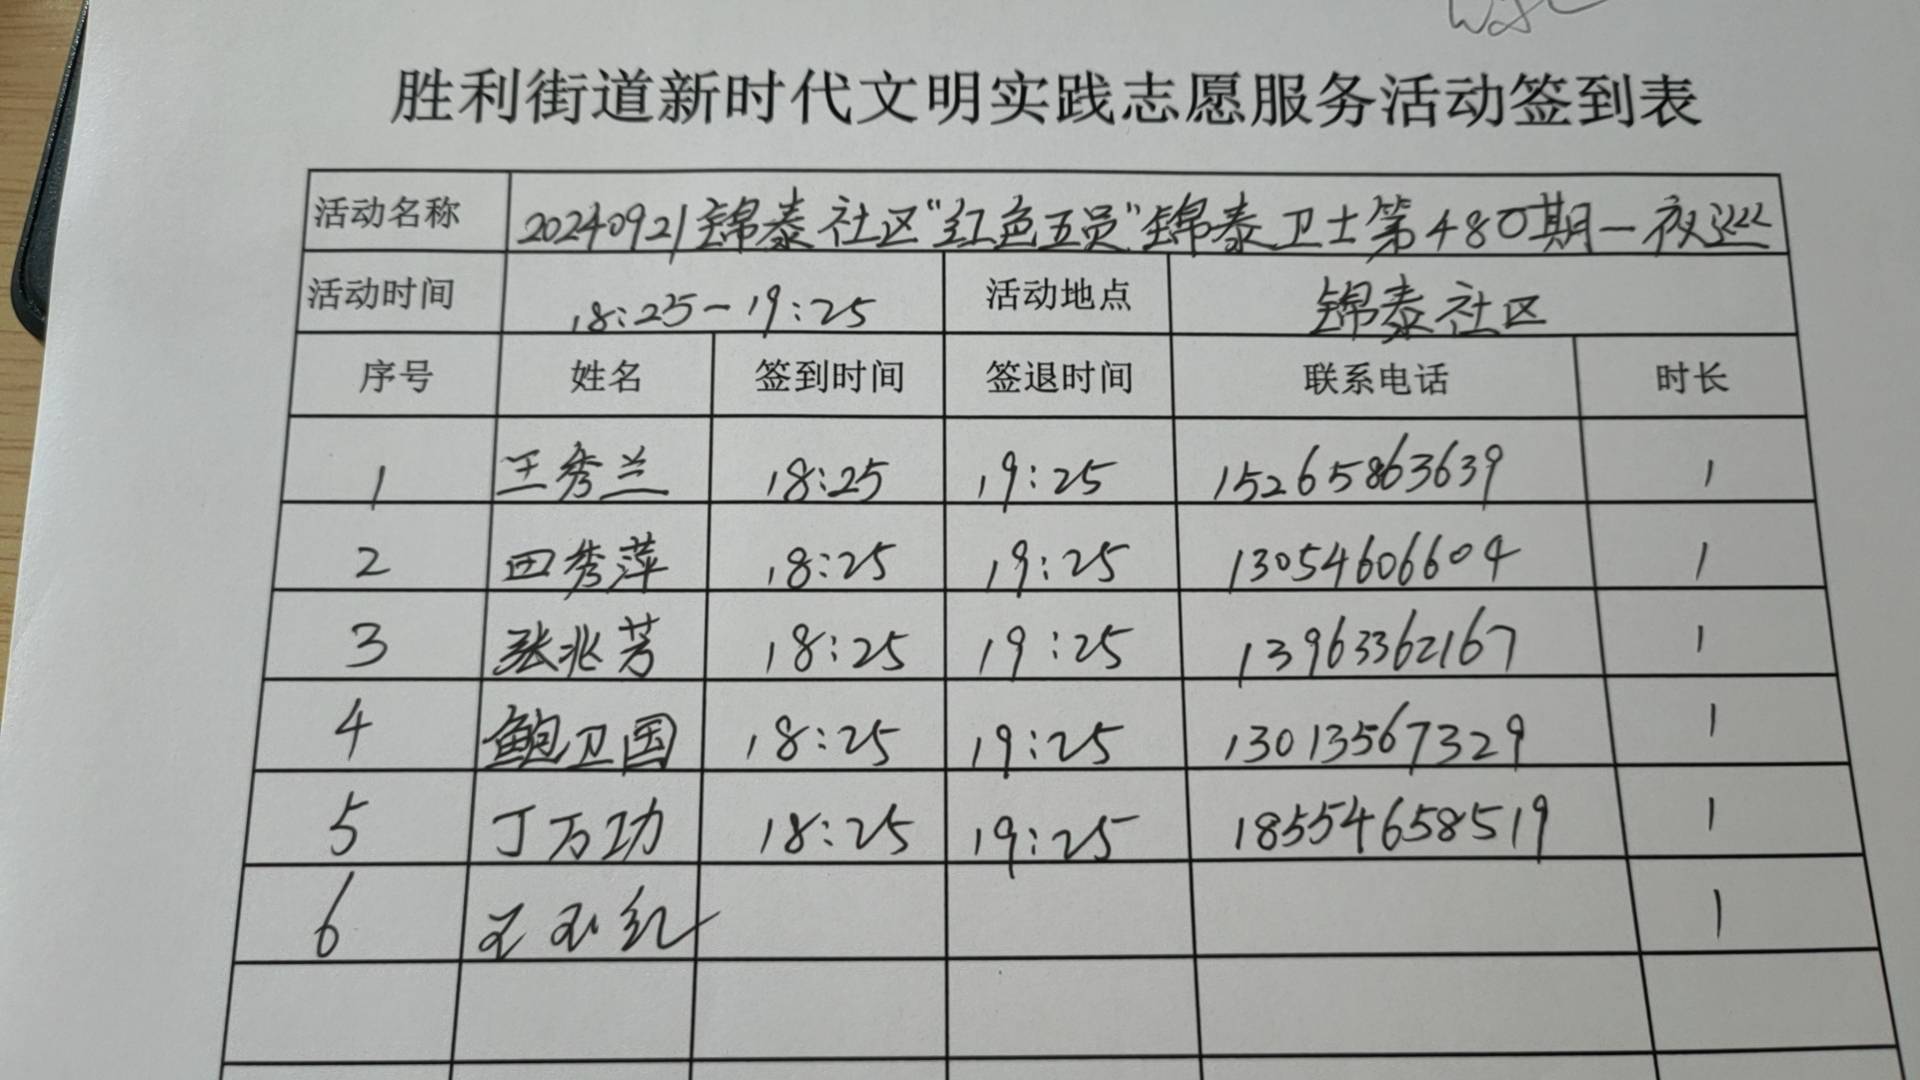 胜利街道新时代文明实践志愿服务活动签到表
活动名称 20240921锦泰社区“红色五员”锦泰卫士第480期一夜巡
活动时间 18:25-19:25 活动地点 锦泰社区
序号 姓名 签到时间 签退时间 联系电话 时长
1 王秀兰 18:25 19:25 15265863639 1
2 田秀萍 18:25 19:25 13054606604 1
3 张兆芳 18:25 19:25 13963362167 1
4 鲍卫国 18:25 19:25 13013567329 1
5 丁万功 18:25 19:25 18554658519 1
6 王玉红 1